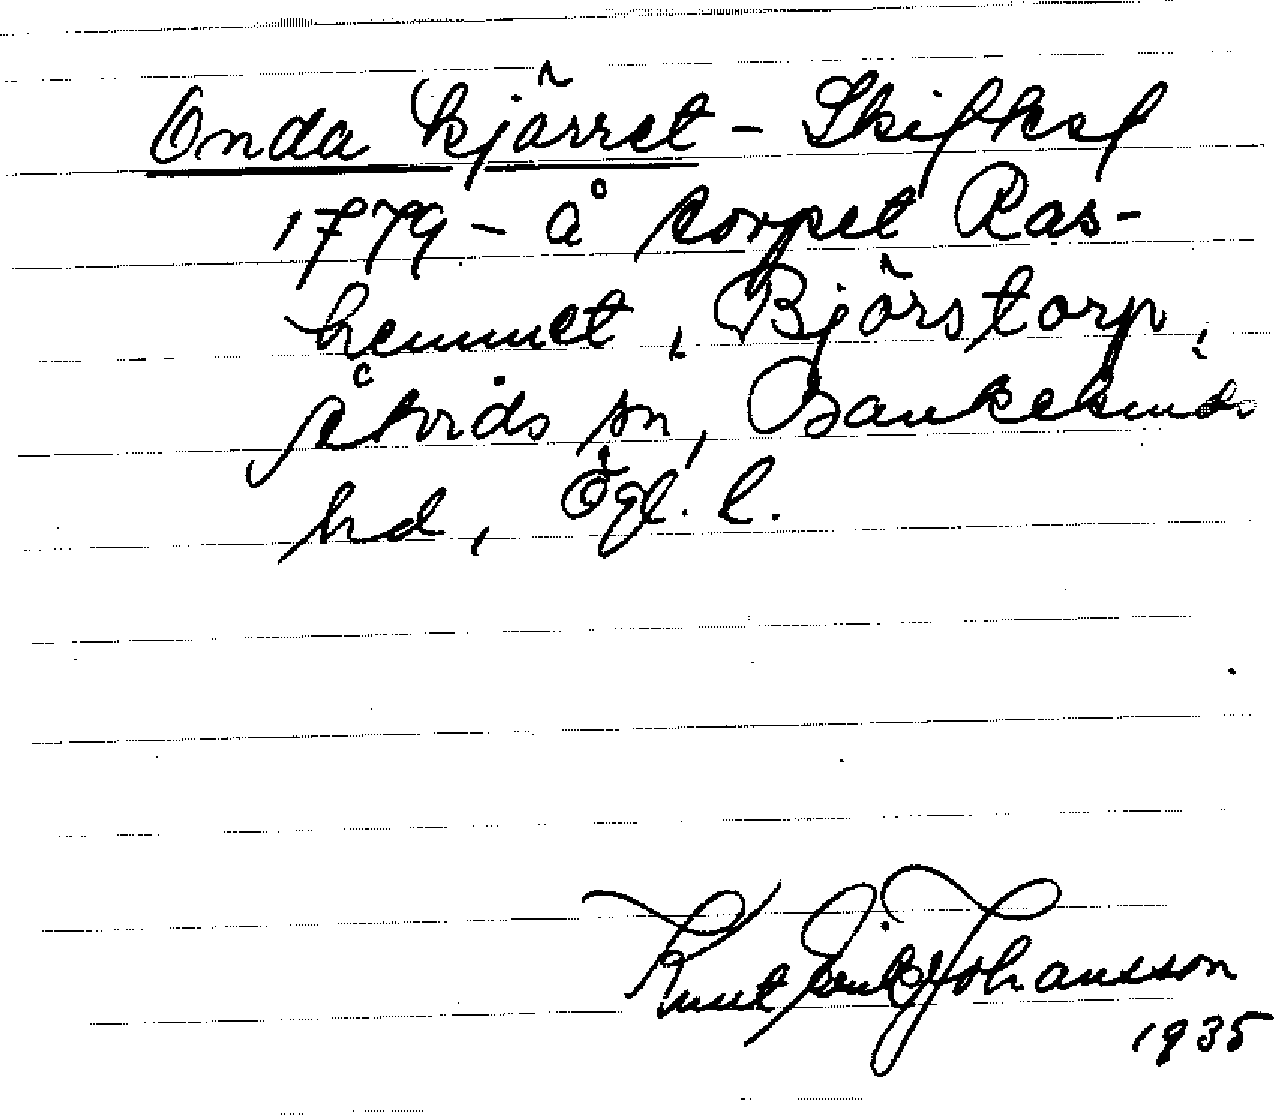 Onda kjärret - Skiftesl
1779 - å torpet Ras-
hemmet, Björstorp,
Åtvids sn, Bankekinds
hd, Ögl. l.
Knut Erik Johansson
1935